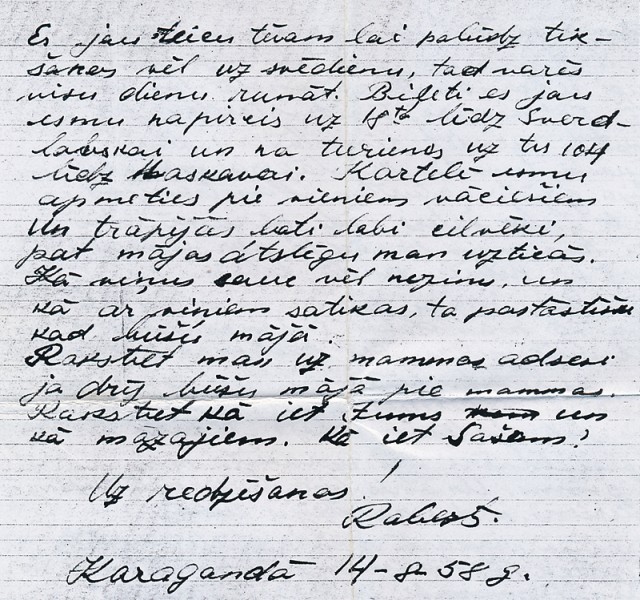 Es jau teicu tēvam lai palūdz tik-
šanos vēl uz svēdienu, tad varēs
visu dienu runāt. Biļeti es jau
esmu nopircis uz 18to līdz Sverd-
lovskai un no turienes uz tu 104
līdz Maskavai. Kartelī esmu
apmeties pie vieniem vāciešiem
un trāpijās ļoti labi cilvēki,
pat mājas átslēgu man uzticās.
Kā viņus sauc vēl nezinu, un
kā ar viņiem satikos, to pastastišu
kad būšu mājā.
Rakstiet man uz mammas adresi
ja drīz būšu mājā pie mammas.
Rakstiet kā iet Jums un
kā mazajiem. Kā iet Sašam!
Uz redzēšanos!
Roberts.
Karagandā 14-8-58 g.